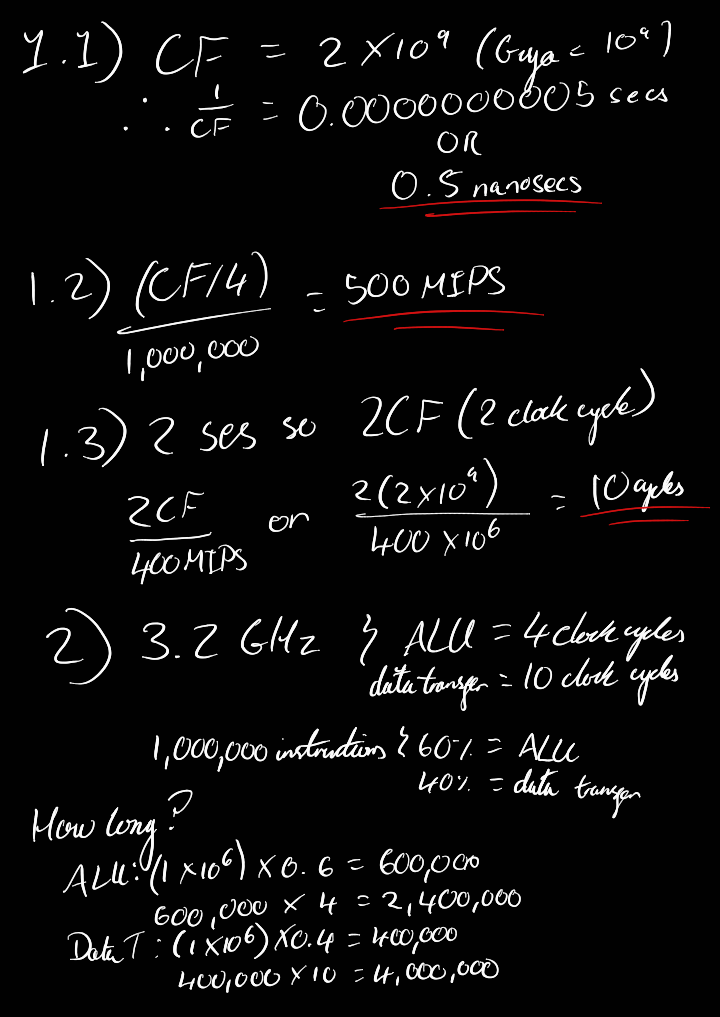 1.1) CF = 2 × 10⁹ (Giga = 10⁹)
∴ 1/CF = 0.0000000005 secs
OR
0.5 nanosecs
1.2) (CF/4) / 1,000,000 = 500 MIPS
1.3) 2 secs so 2CF (2 clock cycle)
2CF / 400MIPS or 2(2×10⁹) / 400 × 10⁶ = 10 cycles
2) 3.2 GHz } ALU = 4 clock cycles
data transfer = 10 clock cycles
1,000,000 instructions } 60% = ALU
40% = data transfer
How long?
ALU: (1 × 10⁶) × 0.6 = 600,000
600,000 × 4 = 2,400,000
Data T: (1×10⁶) × 0.4 = 400,000
400,000 × 10 = 4,000,000